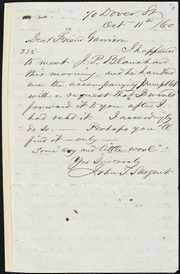 70 Dover St.
Oct 11th /60
Dear Friend Garrison
I happened
to meet J. P. Blanchard
this morning, and he handed
me the accompanying pamphlet
with a request that I would
forward it to you after I
had read it. I accordingly
do so. — Perhaps you'll
find it — only —
Some "dry and little wool"!
Yrs Sincerely
John T. Sargent